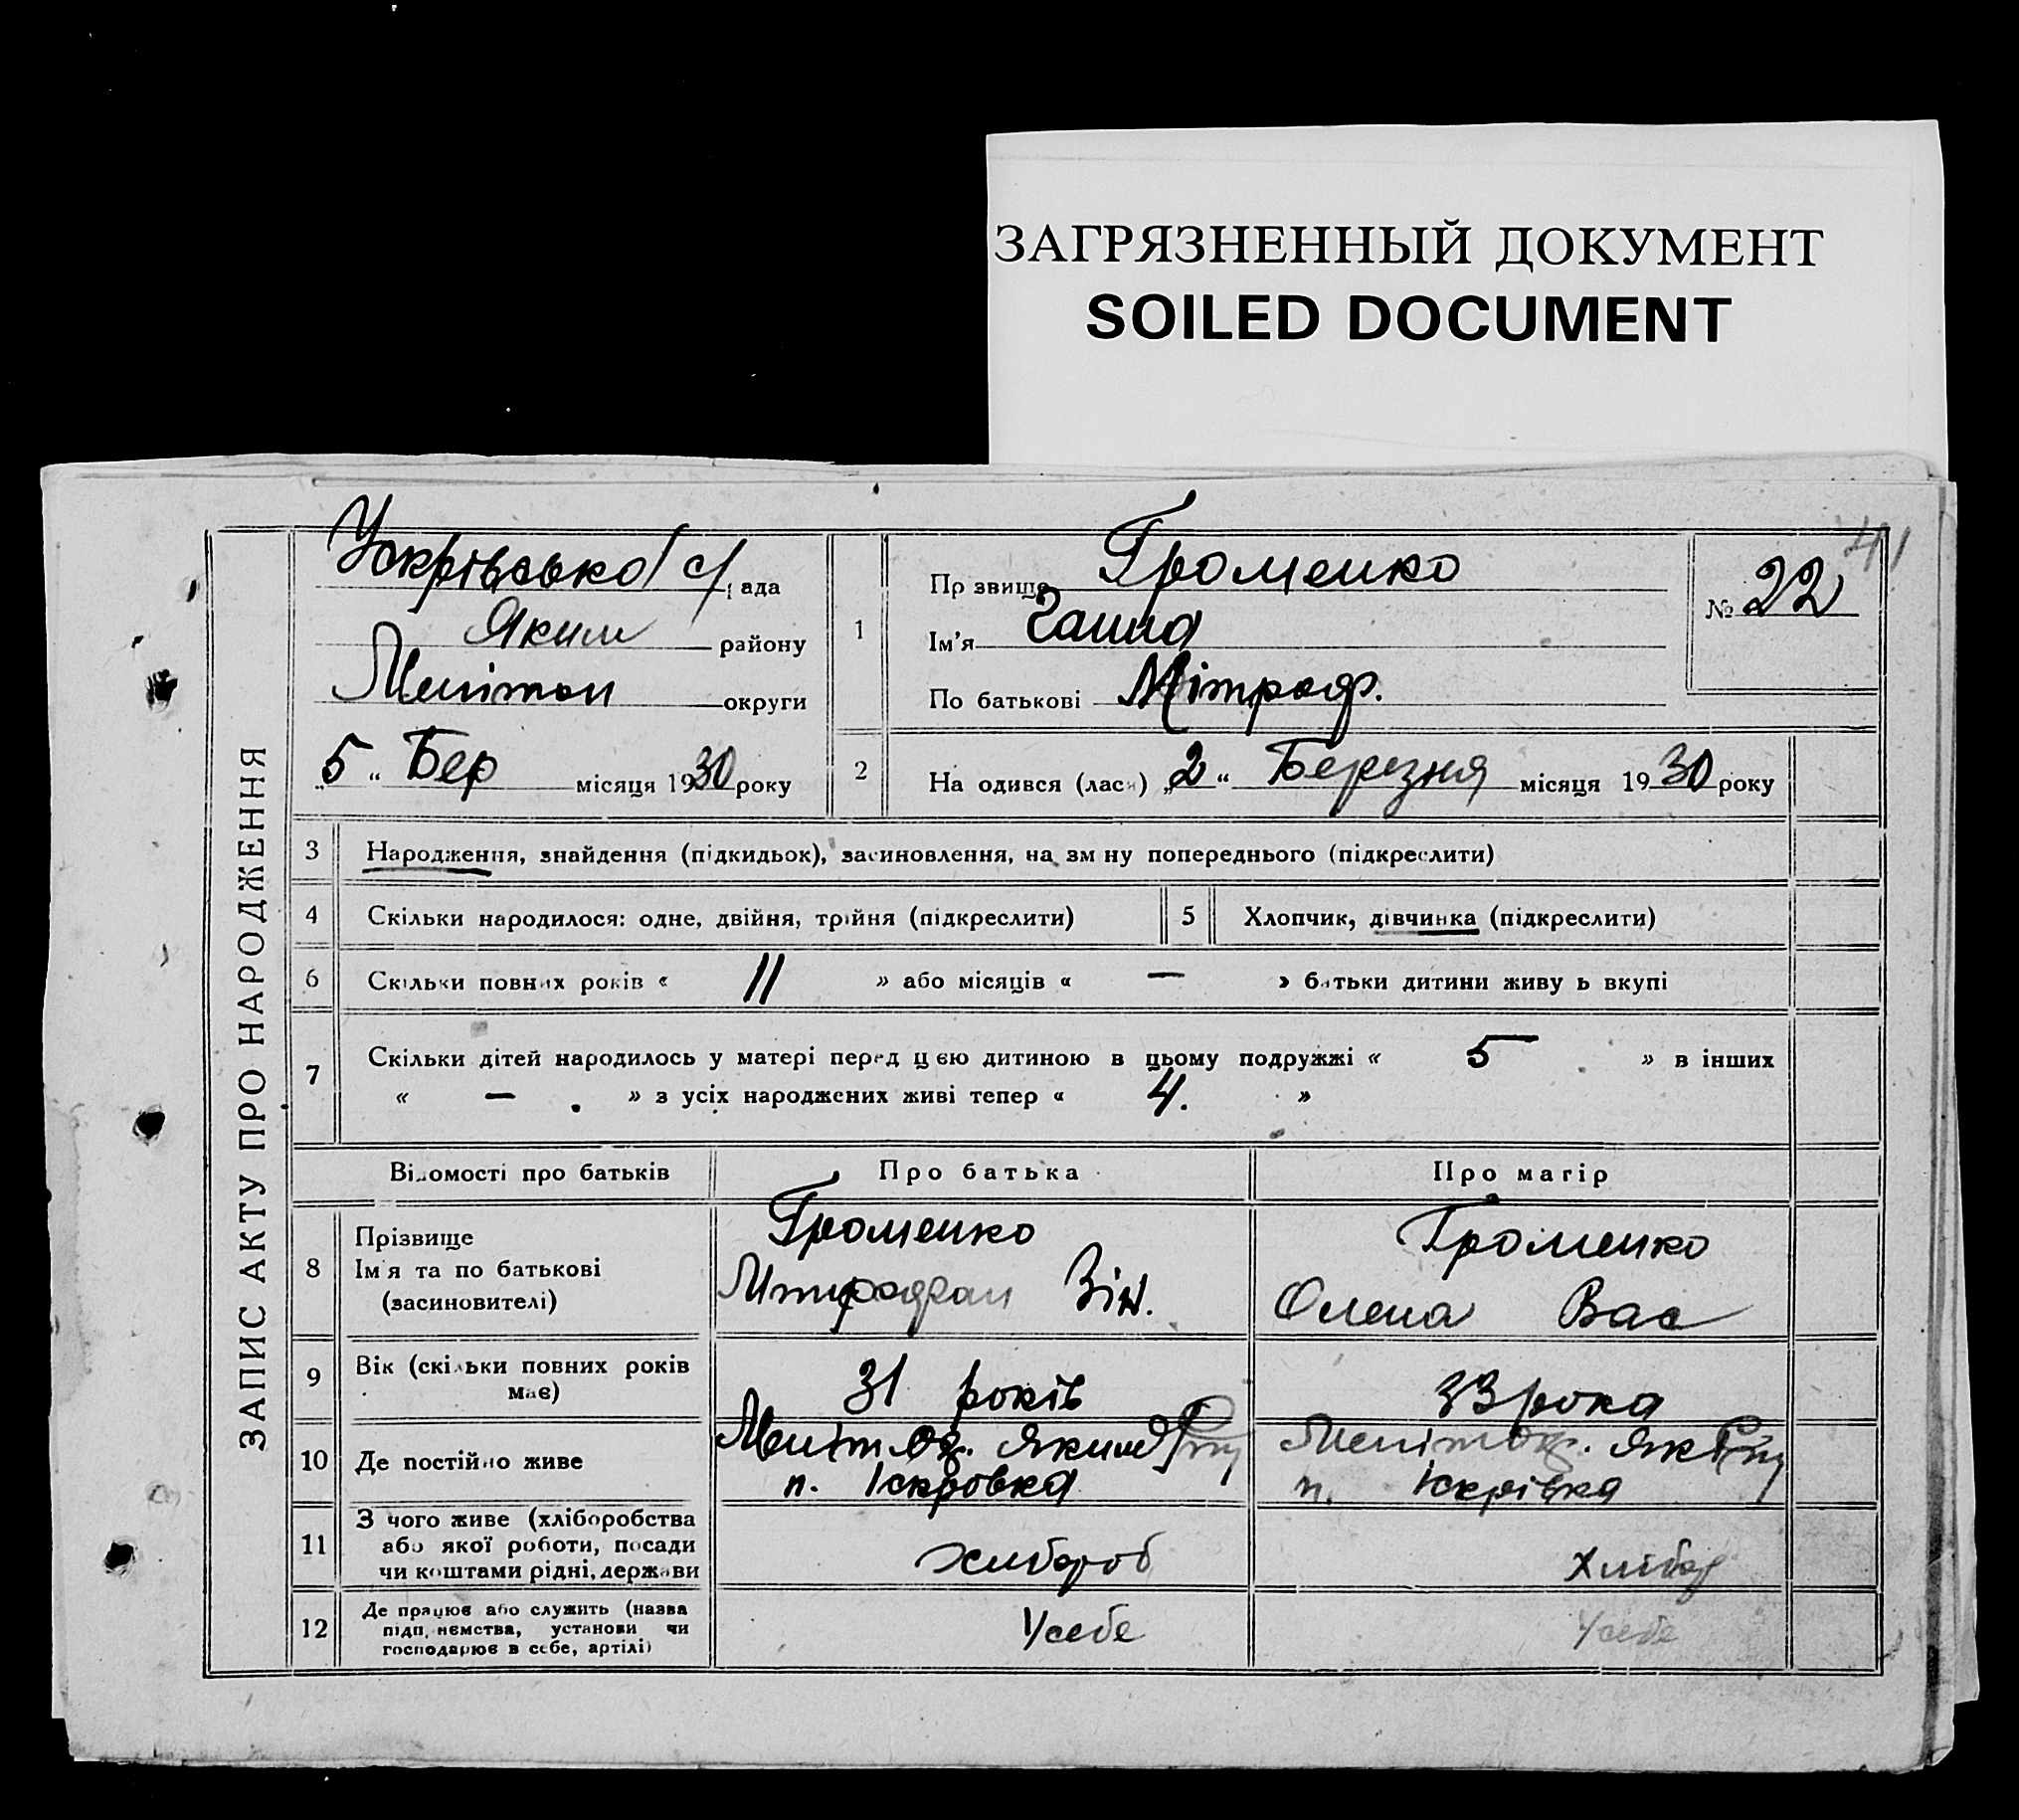 ЗАГРЯЗНЕННЫЙ ДОКУМЕНТ
SOILED DOCUMENT
41
ЗАПИС АКТУ ПРО НАРОДЖЕННЯ
с/рада
Яким району
Мелітоп округи
„5“ Бер місяця 1930 року
1
Прзвище Громенко
Ім'я Ганна
По батькові Мітроф.
№ 22
2
На одився (лася) „2“ Березня місяця 1930 року
3 Народження, знайдення (підкидьок), засиновлення, на зм ну попереднього (підкреслити)
4 Скільки народилося: одне, двійня, трійня (підкреслити)
5 Хлопчик, дівчинка (підкреслити)
6 Скільки повних років « 11 » або місяців « — » батьки дитини живу ь вкупі
7 Скільки дітей народилось у матері перед цією дитиною в цьому подружжі « 5 » в інших
« — . » з усіх народжених живі тепер « 4. »
Відомості про батьків
Про батька
Про матір
8 Прізвище
Ім'я та по батькові
(засиновителі)
Громенко
Митрофан Зін.
Громенко
Олена Вас
9 Вік (скільки повних років
має)
31 років
33 рока
10 Де постійно живе
Меліт. ок. Яким
п. Іскровка
Меліт. ок. Як
п. Іскрівка
11 З чого живе (хліборобства
або якої роботи, посади
чи коштами рідні, держави
хлибороб
Хлибор
12 Де працює або служить (назва
підп. нємства, установи чи
господарює в себе, артілі)
Усебе
Усебе